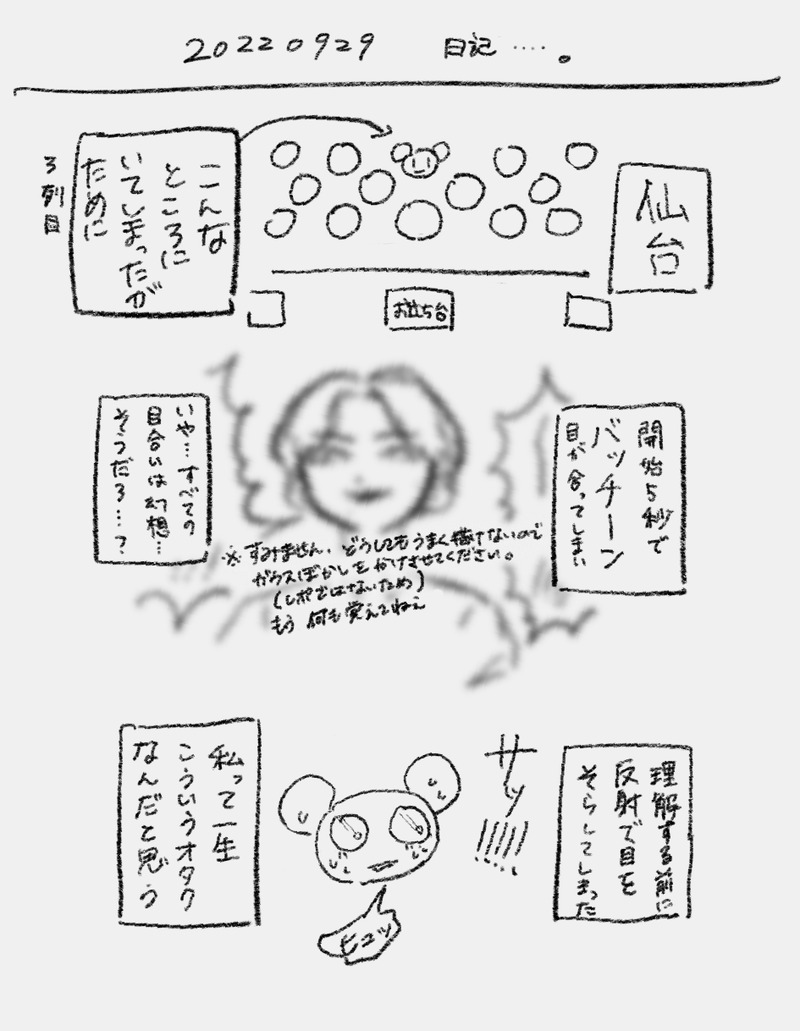 20220929 日記‥‥。
仙台
こんな
ところに
いてしまったが
ために
3列目
お立ち台
開始5秒で
バッチーン
目が合ってしまい
いや…すべての
目合いは幻想…
そうだろ…?
※すみません、どうしてもうまく描けないので
ガウスぼかしをかけさせてください。
(レポではないため)
もう何も覚えてねぇ
理解する前に
反射で目を
そらしてしまった
サッ!!!!!
ヒュッ
私って一生
こういうオタク
なんだと思う